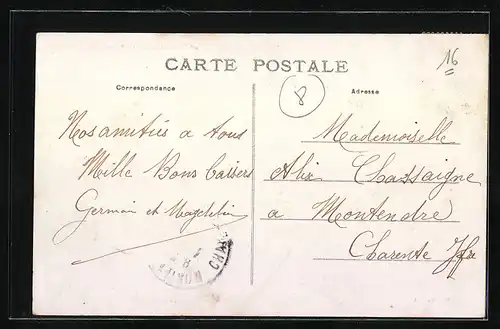 16
CARTE POSTALE
Correspondance
Adresse
8
Nos amitiés a tous
Mille Bons Baisers
Germain et
Mademoiselle
Alix Chassaigne
a Montendre
Charente Jfre
CHA